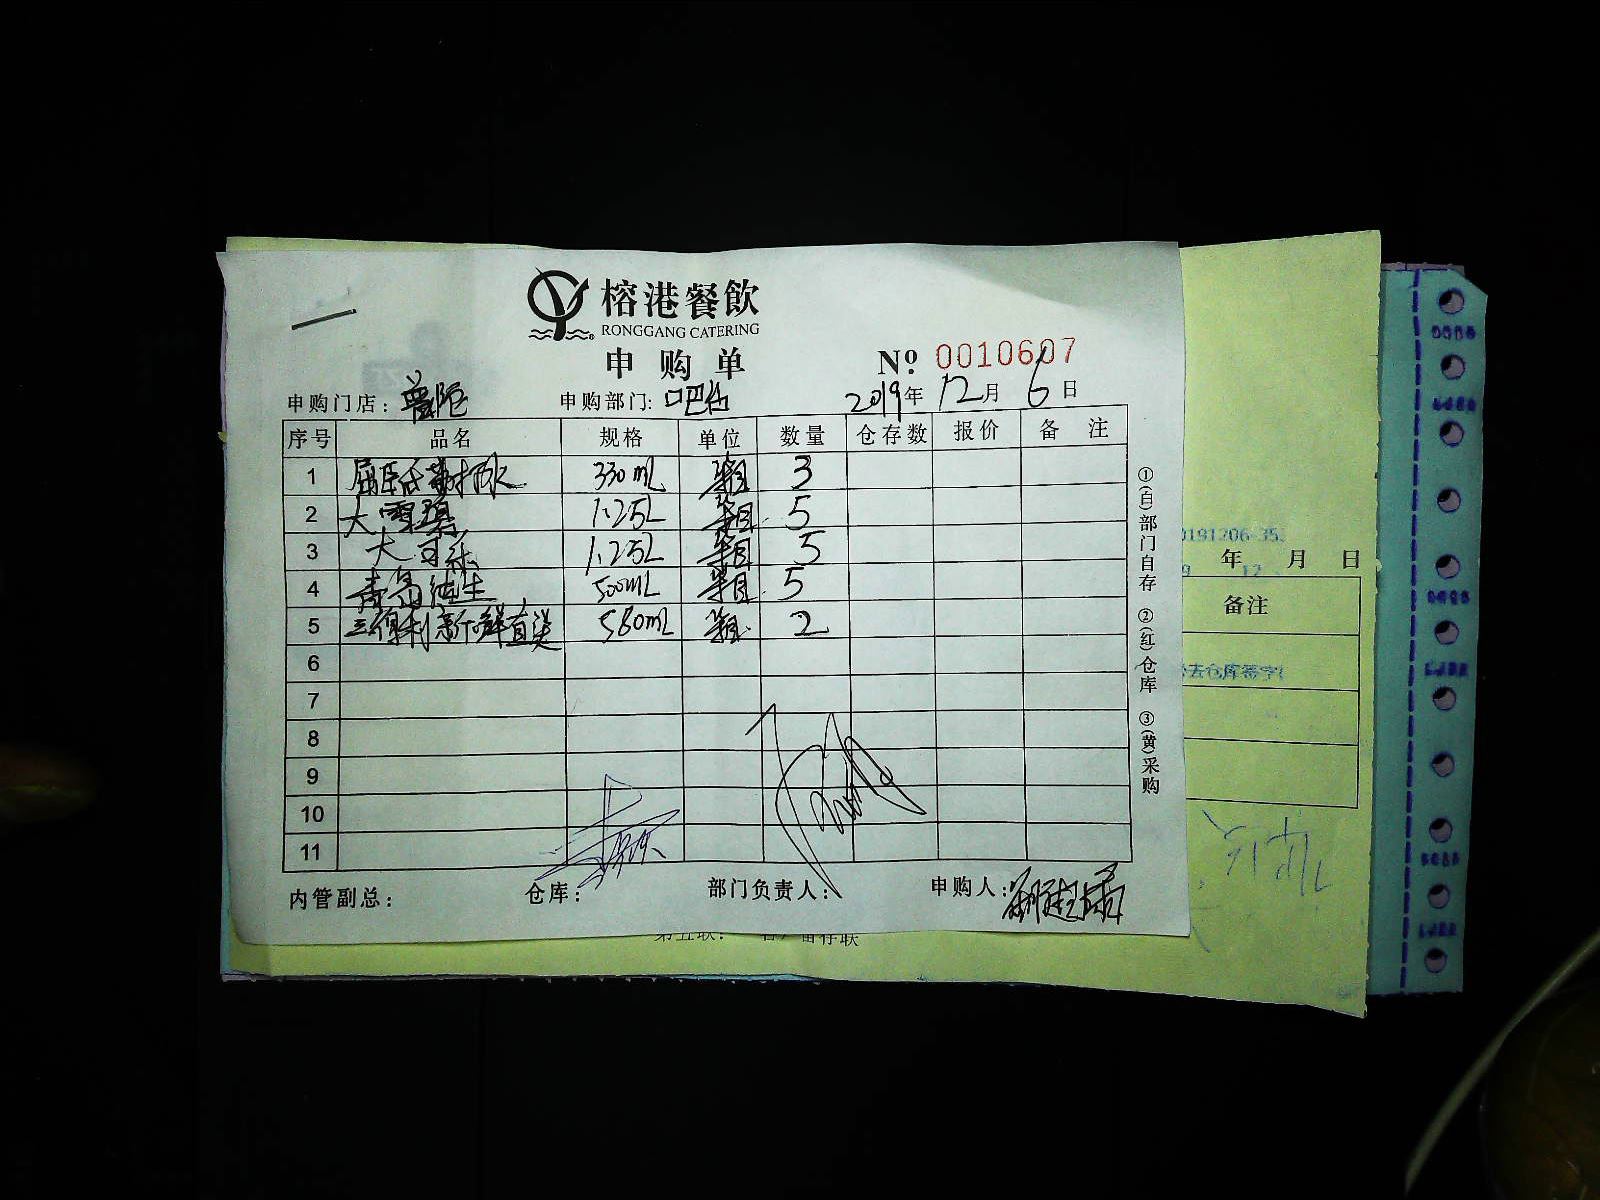 榕港餐飲
RONGGANG CATERING
申购单
№ 0010607
申购门店: 申购部门: 吧台 2019年12月6日
序号 品名 规格 单位 数量 仓存数 报价 备注
1 屈臣氏苏打水 330mL 箱 3
2 大雪碧 1.25L 箱 5
3 大可乐 1.25L 箱 5
4 青岛纯生 500mL 箱 5
5 三得利新鲜直送 580mL 箱 2
6
7
8
9
10
11
内管副总: 仓库: 部门负责人: 申购人:
①(白)部门自存 ②(红)仓库 ③(黄)采购
0191206-35
年 月 日
备注
去仓库签字